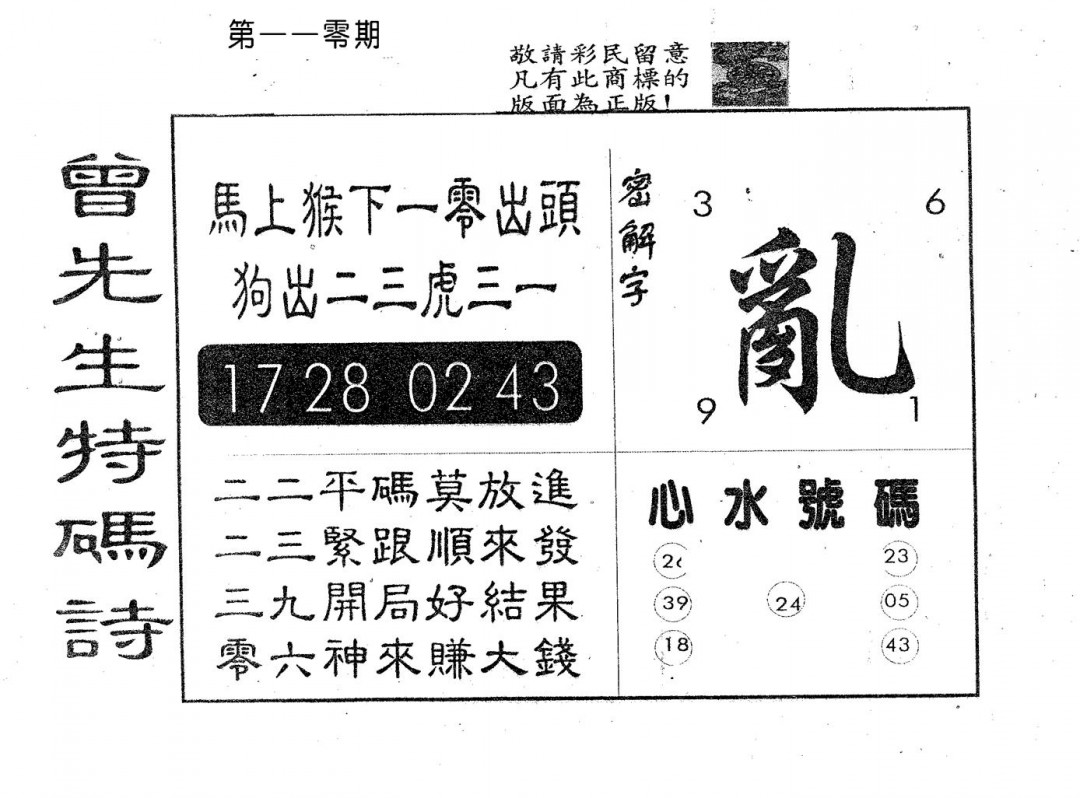 第一一零期
敬請彩民留意
凡有此商標的
版面為正版!
曾先生特碼詩
馬上猴下一零出頭
狗出二三虎三一
17 28 02 43
二二平碼莫放進
二三緊跟順來發
三九開局好結果
零六神來賺大錢
密解字
3 6
亂
9 1
心水號碼
26 23
39 24 05
18 43